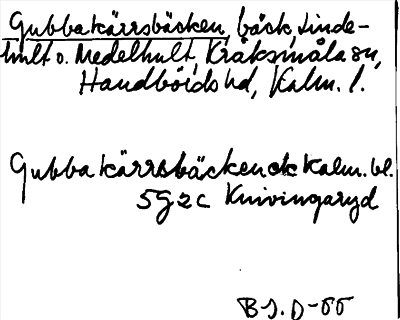 Gubbakärrsbäcken, bäck, Linde-
hult o. Medelhult, Kråksmåla sn,
Handbörds hd, Kalm. l.
Gubbakärrsbäcken ek Kalm. bl.
5G2c Knivingaryd
B-J.D-55